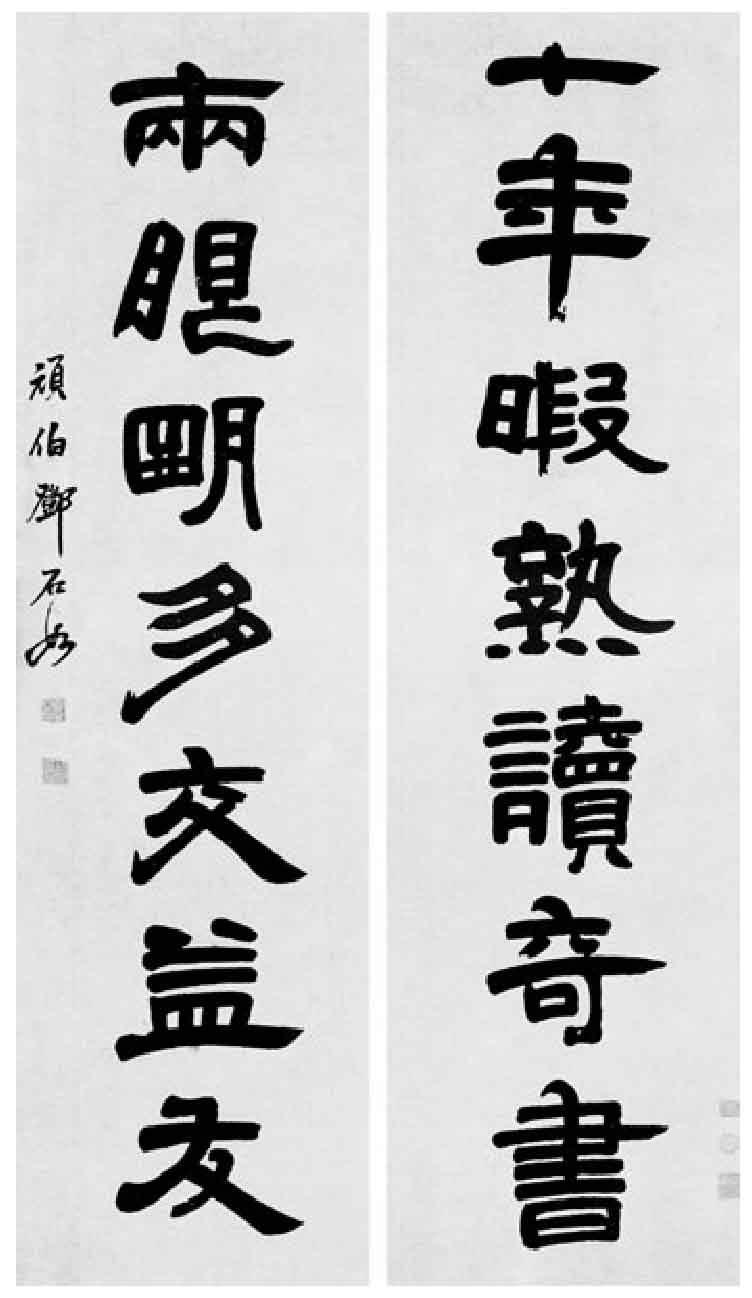 十年暇熟讀奇書
兩眼明多交益友
頑伯鄧石如